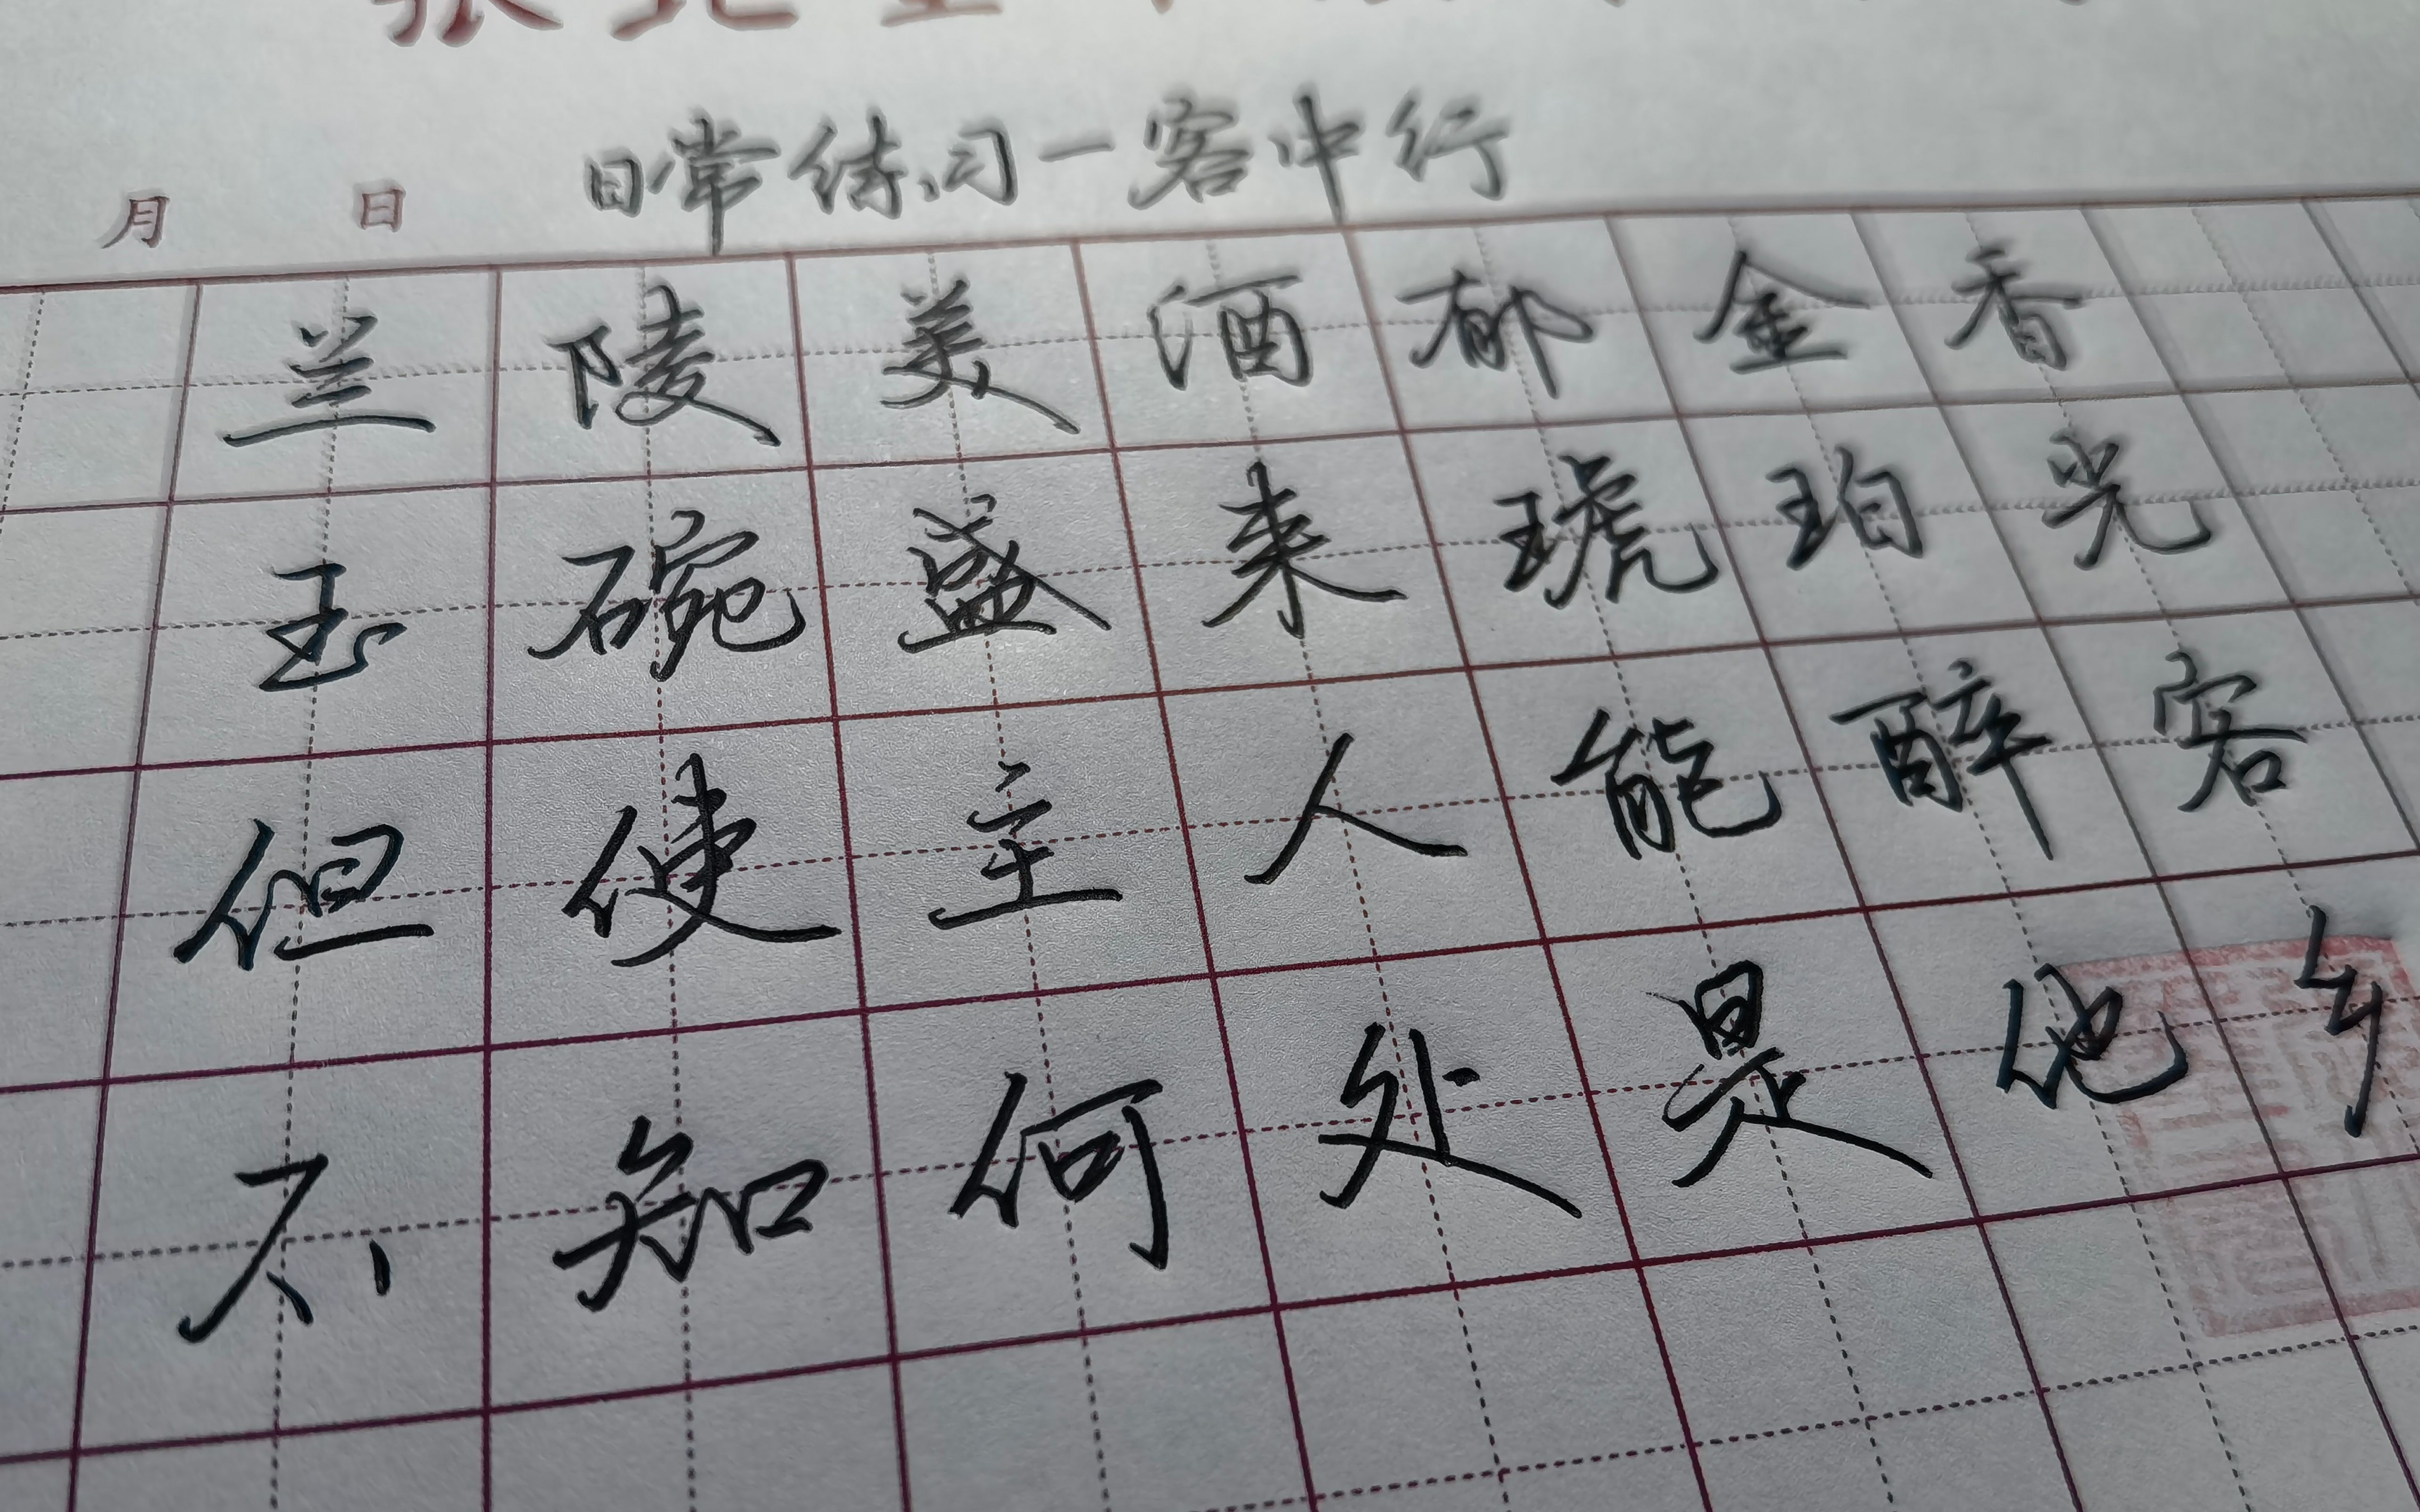 日常练习一客中行
月 日
兰陵美酒郁金香
玉碗盛来琥珀光
但使主人能醉客
不知何处是他乡